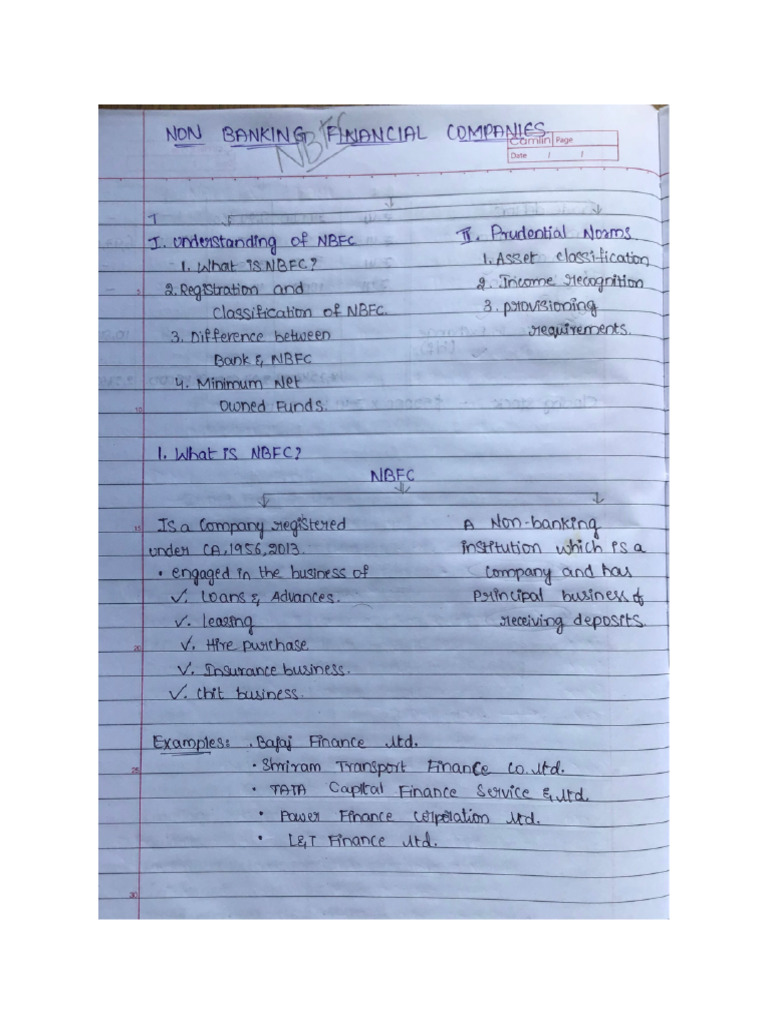 NON BANKING FINANCIAL COMPANIES
NBFC
camlin Page
Date / /
I
I. Understanding of NBFC
1. What is NBFC?
2. Registration and
Classification of NBFC.
3. Difference between
Bank & NBFC
4. Minimum Net
Owned Funds.
II. Prudential Norms
1. Asset classification
2. Income recognition
3. provisioning
requirements.
5
10
1. What is NBFC?
NBFC
15
Is a Company registered
under CA, 1956, 2013.
• engaged in the business of
✓. Loans & Advances.
✓. leasing
✓. Hire purchase.
✓. Insurance business.
✓. chit business.
A Non-banking
institution which is a
company and has
principal business of
receiving deposits
20
Examples: . Bajaj Finance ltd.
• Shriram Transport Finance Co. ltd.
• TATA Capital Finance Service & ltd.
• Power Finance Corporation ltd.
• L&T Finance ltd.
25
30